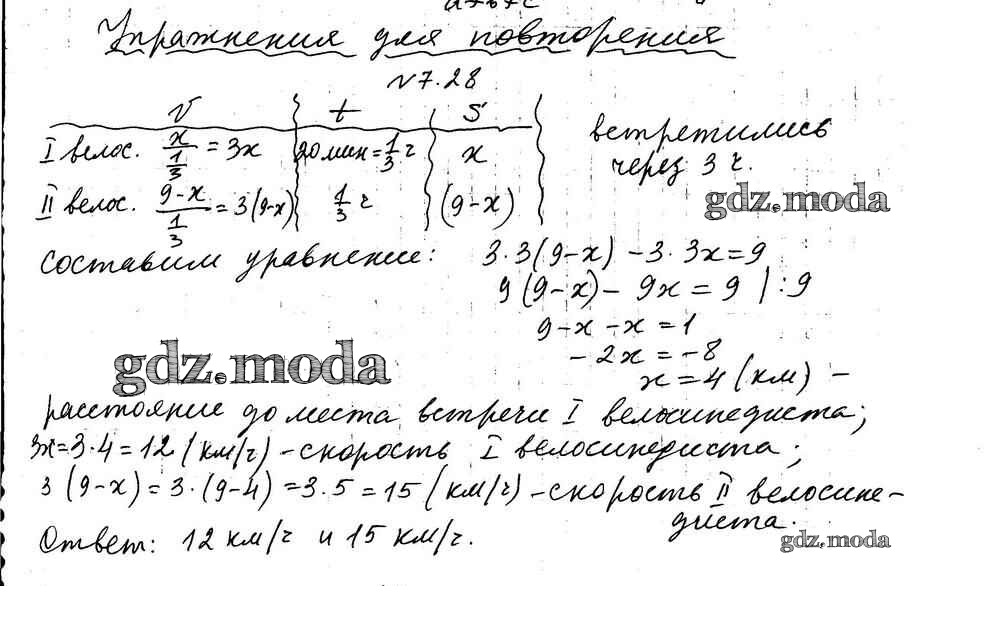 Упражнения для повторения
№7.28
V t S
I велос. x/(1/3) = 3x 20 мин = 1/3 ч x
II велос. (9-x)/(1/3) = 3(9-x) 1/3 ч (9-x)
встретились
через 3 ч.
gdz.moda
составим уравнение: 3·3(9-x) - 3·3x = 9
9(9-x) - 9x = 9 | :9
9-x-x = 1
-2x = -8
gdz.moda
x = 4 (км) -
расстояние до места встречи I велосипедиста;
3x = 3·4 = 12 (км/ч) - скорость I велосипедиста;
3(9-x) = 3·(9-4) = 3·5 = 15 (км/ч) - скорость II велосипе-
диста.
Ответ: 12 км/ч и 15 км/ч.
gdz.moda